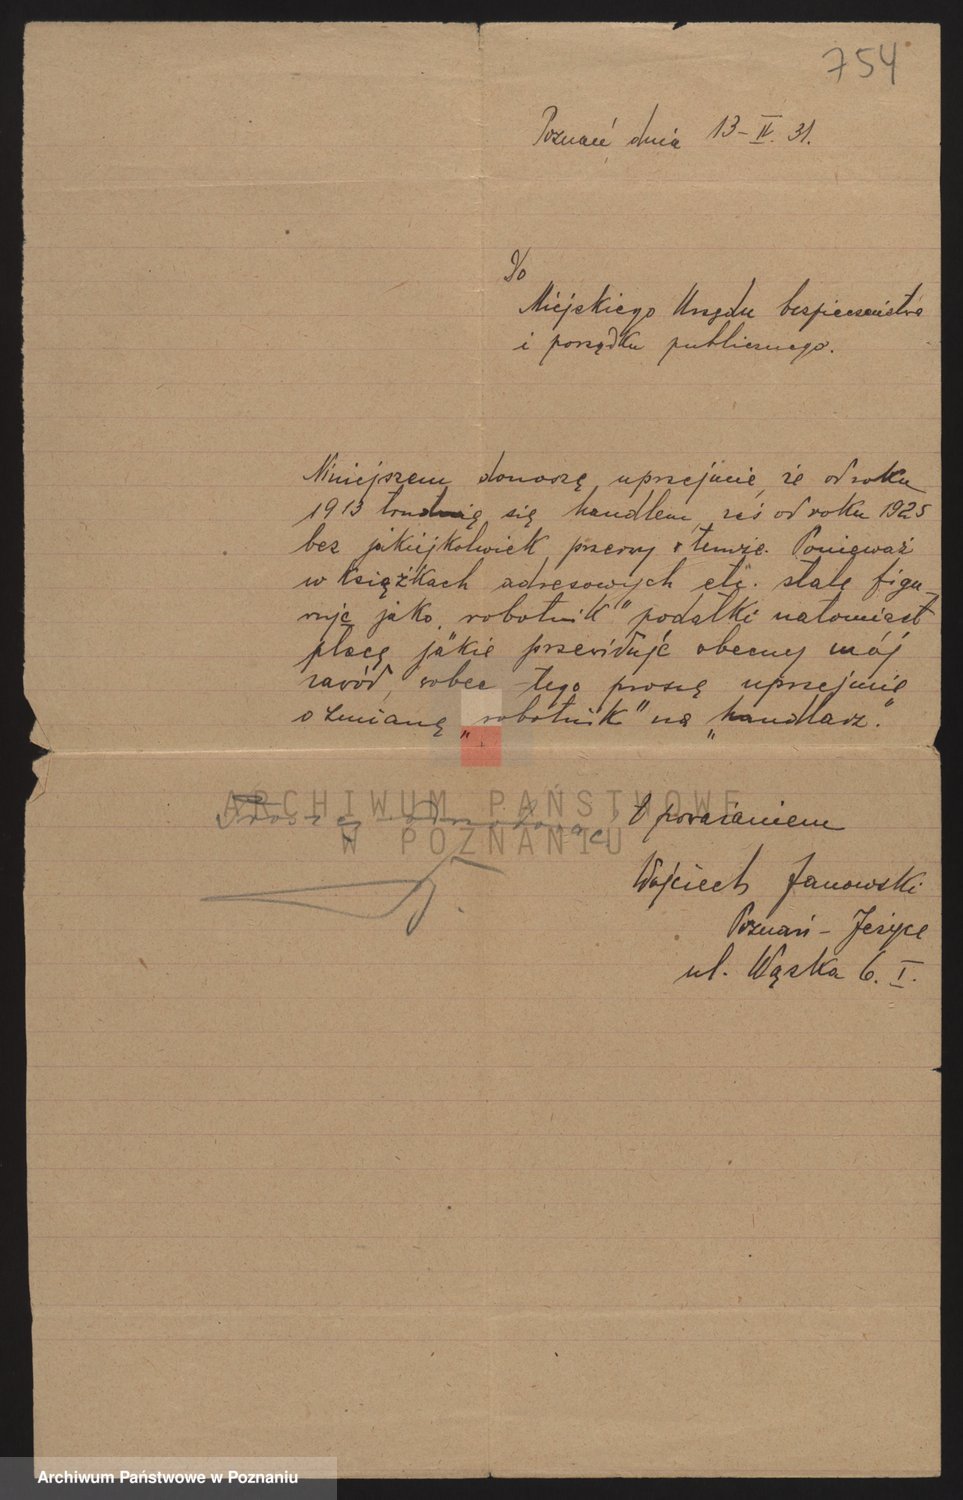 754
Poznań, dnia 13-IV. 31.
Do
Miejskiego Urzędu bezpieczeństwa
i porządku publicznego.
Niniejszem donoszę uprzejmie, że od roku
1913 trudnię się handlem, zaś od roku 1925
bez jakiejkolwiek przerwy w temże. Ponieważ
w książkach adresowych etc. stale figu-
ruję jako „robotnik" podatki natomiast
płacę jakie przewiduje obecny mój
zawód, wobec tego proszę uprzejmie
o zmianę „robotnik" na „handlarz."
ARCHIWUM PAŃSTWOWE
W POZNANIU
Z poważaniem
Wojciech Janowski
Poznań - Jeżyce
ul. Wąska 6. I.
Archiwum Państwowe w Poznaniu